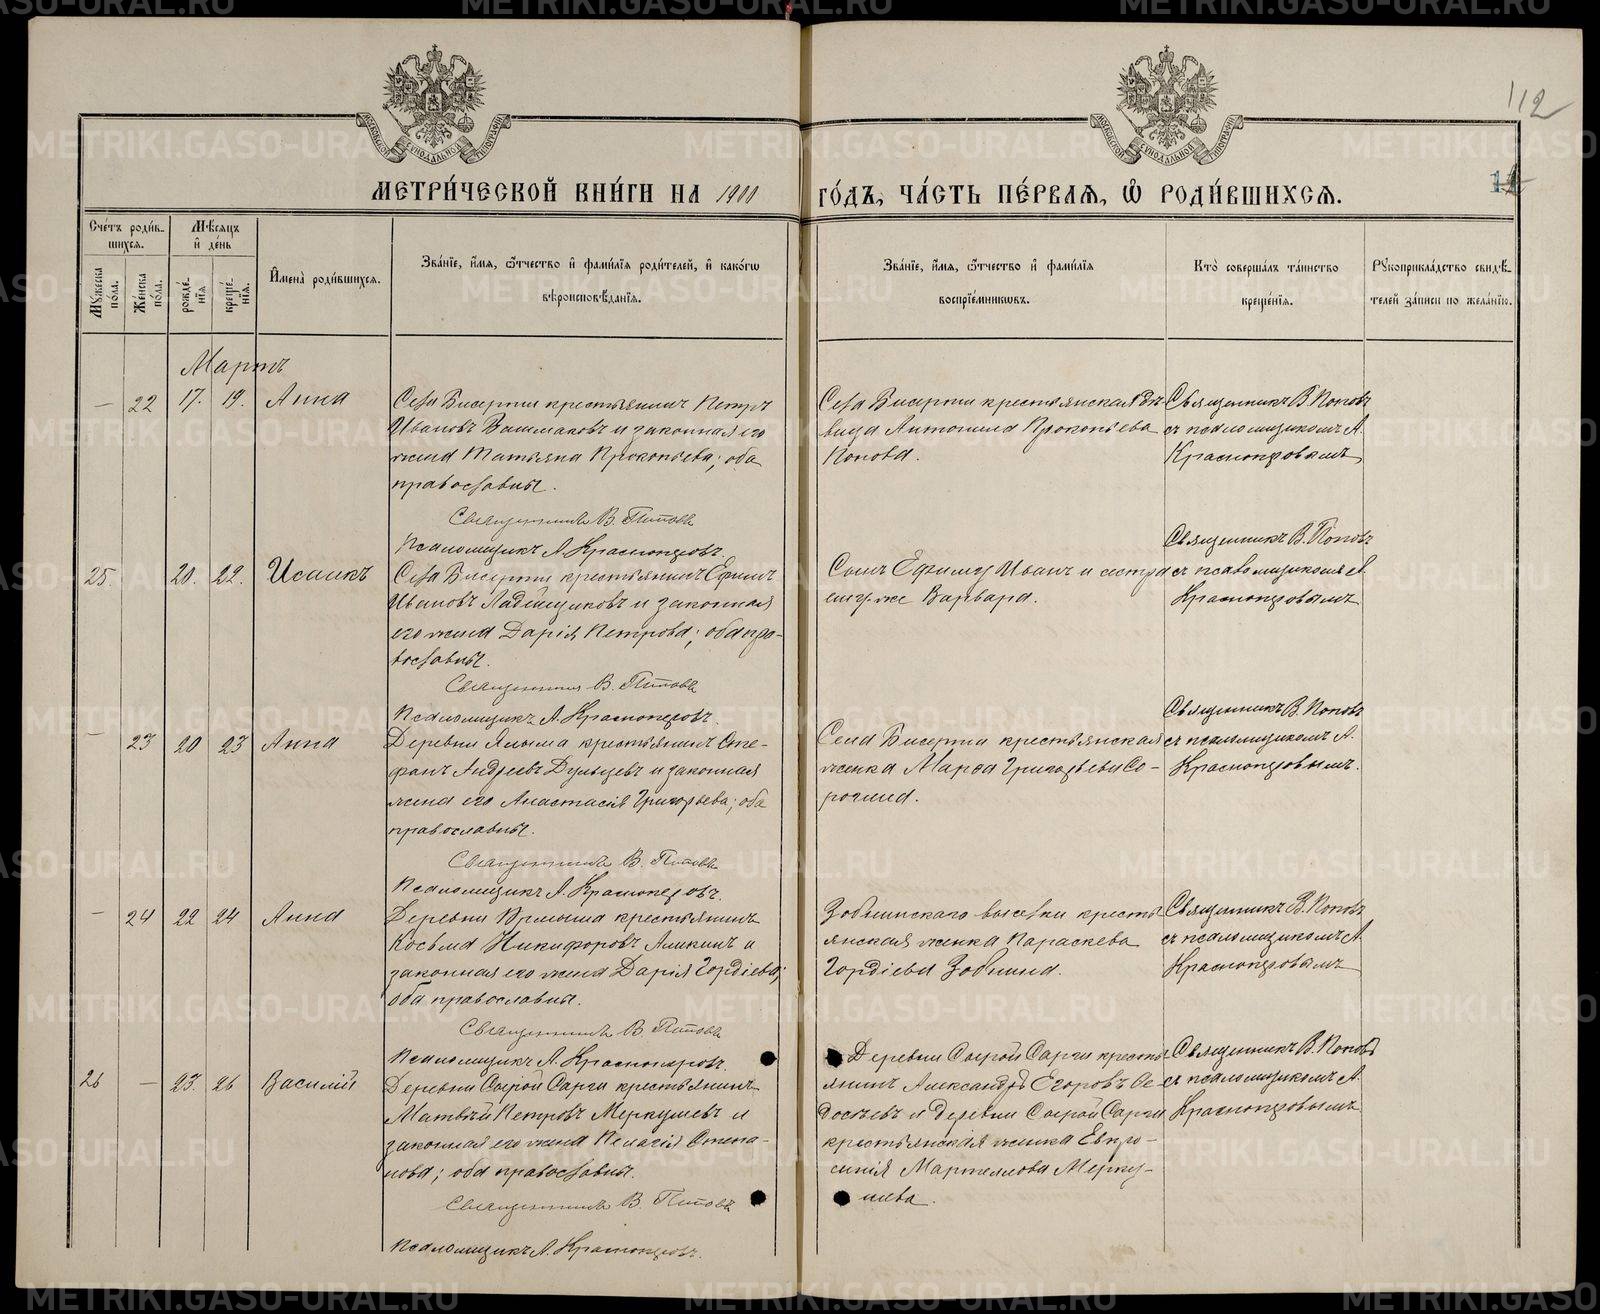 112
МЕТРИ́ЧЕСКОЙ КНИ́ГИ НА 1900 ГО́ДЪ, ЧА́СТЬ ПЕ́РВАЯ, Ѡ РОДИ́ВШИХСЯ.
Сче́тъ роди́в-
шихся.
Мѣ́сяцъ
и де́нь
Мужеска
по́ла.
Же́нска
по́ла.
рожде́-
нія
креще́-
нія.
Имена̀ роди́вшихся.
Зва́ніе, и́мя, ѻ́тчество и фами́лія роди́телей, и како́гѡ
вѣроисповѣ́данія.
Зва́ніе, и́мя, ѻ́тчество и фами́лія
воспріе́мникѡвъ.
Кто̀ соверша́лъ та́инство
креще́нія.
Рукоприкла́дство свидѣ́-
телей за́писи по жела́нію.
Мартъ
— 22 17. 19. Анна
Села Бисерти крестьянинъ Петръ
Ивановъ Башмаковъ и законная его
жена Татьяна Прокопьева; оба
православны.
Священникъ В. Поповъ
Псаломщикъ А. Красноперовъ.
Села Бисерти крестьянская дѣ-
вица Антонина Прокопьева
Попова.
Священникъ В. Поповъ
съ псаломщикомъ А.
Красноперовымъ
25. 20. 22. Исаакъ
Села Бисерти крестьянинъ Ефимъ
Ивановъ Ладейщиковъ и законная
его жена Дарія Петрова; оба пра-
вославны.
Священникъ В. Поповъ
Псаломщикъ А. Красноперовъ.
Сынъ Ефиму Иванъ и сестра
ему же Варвара.
Священникъ В. Поповъ
съ псаломщикомъ А.
Красноперовымъ
— 23 20 23 Анна
Деревни Ялыма крестьянинъ Сте-
фанъ Андреевъ Дульцевъ и законная
жена его Анастасія Григорьева; оба
православны.
Священникъ В. Поповъ
Псаломщикъ А. Красноперовъ.
Села Бисерти крестьянская
женка Марѳа Григорьева Со-
рочина.
Священникъ В. Поповъ
съ псаломщикомъ А.
Красноперовымъ.
— 24 22 24 Анна
Деревни крестьянинъ
Косьма Никифоровъ Аликинъ и
законная его жена Дарія Гордіева;
оба православны.
Священникъ В. Поповъ
Псаломщикъ А. Красноперовъ.
Зобнинскаго выселки кресть-
янская женка Параскева
Гордіева Зобнина.
Священникъ В. Поповъ
съ псаломщикомъ А.
Красноперовымъ
26 — 23 26 Василій
Деревни Сырой Сарги крестьянинъ
Матвѣй Петровъ Меркушевъ и
законная его жена Пелагія Степа-
нова; оба православны.
Священникъ В. Поповъ
Псаломщикъ А. Красноперовъ.
Деревни Сырой Сарги кресть-
янинъ Александръ Егоровъ Ѳе-
досѣевъ и деревни Сырой Сарги
крестьянская женка Евпро-
синія Мартемлова Мерку-
шева.
Священникъ В. Поповъ
съ псаломщикомъ А.
Красноперовымъ
METRIKI.GASO-URAL.RU